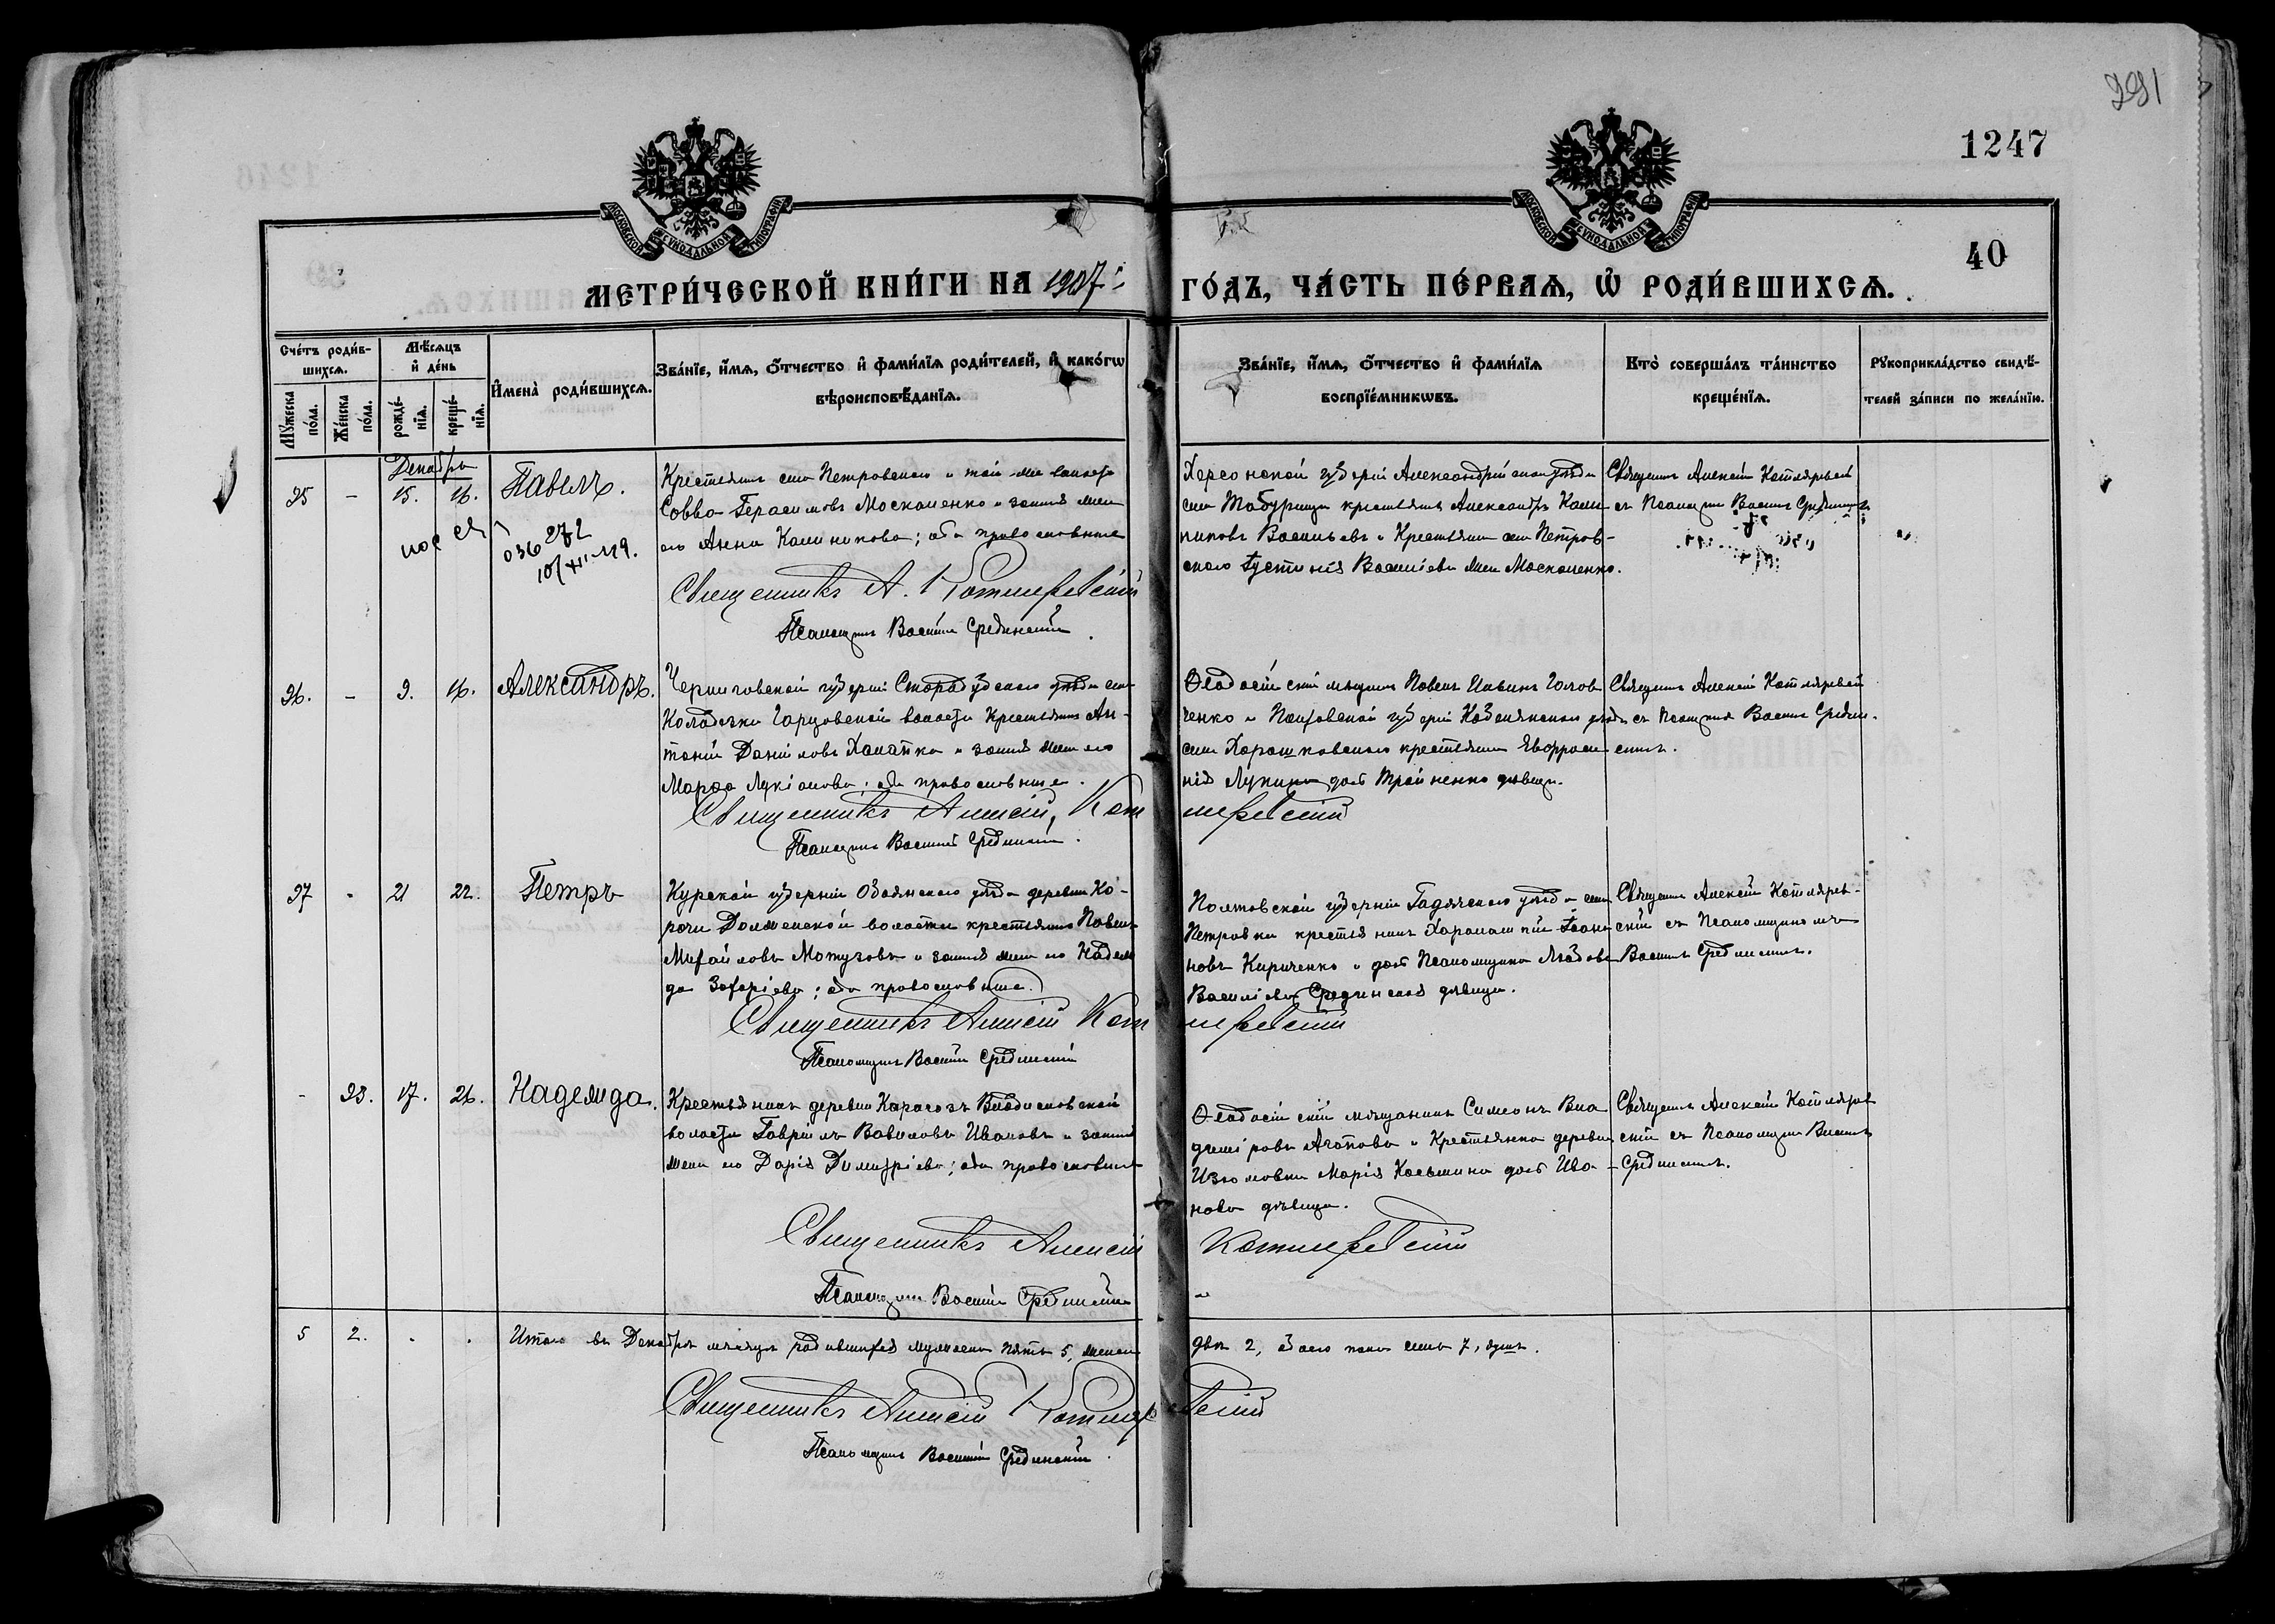 291
1247
40
МОСКОВСКОЙ СѴНОДАЛЬНОЙ ТИПОГРАФІИ
МОСКОВСКОЙ СѴНОДАЛЬНОЙ ТИПОГРАФІИ
МЕТРИ́ЧЕСКОЙ КНИ́ГИ НА 1907 ГО́ДЪ, ЧА́СТЬ ПЕ́РВАѦ, Ѽ РОДИ́ВШИХСѦ.
Сче́тъ роди́в-
шихсѧ.
Мѣ́сѧцъ
и҆ де́нь
Мꙋ́жеска
по́ла.
Же́нска
по́ла.
рожде́-
нїѧ.
креще́-
нїѧ.
И҆мена̀ роди́вшихсѧ.
Зва́нїе, и҆́мѧ, ѻ҆́тчество и҆ фами́лїѧ роди́телей, и҆ како́гѡ
вѣроисповѣ́данїѧ.
Зва́нїе, и҆́мѧ, ѻ҆́тчество и҆ фами́лїѧ
воспрїе́мникѡвъ.
Кто̀ соверша́лъ та́инство
креще́нїѧ.
Рꙋкоприкла́дство свидѣ́-
телей за́писи по жела́нїю.
Декабрь
25 - 15. 16. Павелъ.
Крестьянинъ села Петровскаго и той-же волости
Савва Герасимовъ Москаленко и законная жена
его Анна Калиникова; оба православные
Священникъ А. Котляревскій
Псаломщикъ Василій Срединскій.
Херсонской губерніи Александрійскаго уѣзда
села Табурища крестьянинъ Александръ Кали-
никовъ Васильевъ и Крестьянка села Петров-
скаго Іустинія Васильева жена Москаленко.
Священникъ Алексій Котляревскій
съ Псаломщикомъ Василіемъ Срединскимъ
26. - 9. 16. Александръ.
Черниговской губерніи Стародубскаго уѣзда села
Колодезки Гарцовской волости Крестьянинъ Ан-
тоній Даніиловъ Халапка и законная жена его
Марѳа Лукіанова; оба православные.
Священникъ Алексій Котляревскій
Псаломщикъ Василій Срединскій.
Ѳеодосійскій мѣщанинъ Павелъ Ильинъ Голов-
ченко и Полтавской губерніи Кобелякскаго уѣзда
села Хорошковскаго крестьянка Евфроси-
нія Лукина дочь Трайненко дѣвица.
Священникъ Алексій Котляревскій
съ Псаломщикомъ Василіемъ Средин-
скимъ.
27 - 21 22. Петръ
Курской губерніи Обоянскаго уѣзда деревни Ко-
рочи Долженской волости крестьянинъ Павелъ
Михайловъ Мотузовъ и законная жена его Надеж-
да Захаріева; оба православные.
Священникъ Алексій Котляревскій
Псаломщикъ Василій Срединскій
Полтавской губерніи Гадячскаго уѣзда села
Петровки крестьянинъ Харалампій Іоан-
новъ Кириченко и дочь Псаломщика Любовь
Василіева Срединская дѣвица.
Священникъ Алексій Котлярев-
скій съ Псаломщикомъ
Василіемъ Срединскимъ.
- 23. 17. 26. Надежда.
Крестьянинъ деревни Карагозъ Владиславской
волости Гавріилъ Вавиловъ Ивановъ и законная
жена его Дарія Димитріева; оба православные
Священникъ Алексій Котляревскій
Псаломщикъ Василій Срединскій
Ѳеодосійскій мѣщанинъ Симеонъ Вла-
диміровъ Агаповъ и Крестьянка деревни
Изюмовки Марія Косьмина дочь Ива-
нова дѣвица.
Священникъ Алексій Котлярев-
скій съ Псаломщикомъ Василіемъ
Срединскимъ.
5 2. . . Итого въ Декабрѣ мѣсяцѣ родившихся мужеска пять 5, женска двѣ 2, обоего пола семь 7, душъ.
Священникъ Алексій Котляревскій
Псаломщикъ Василій Срединскій.